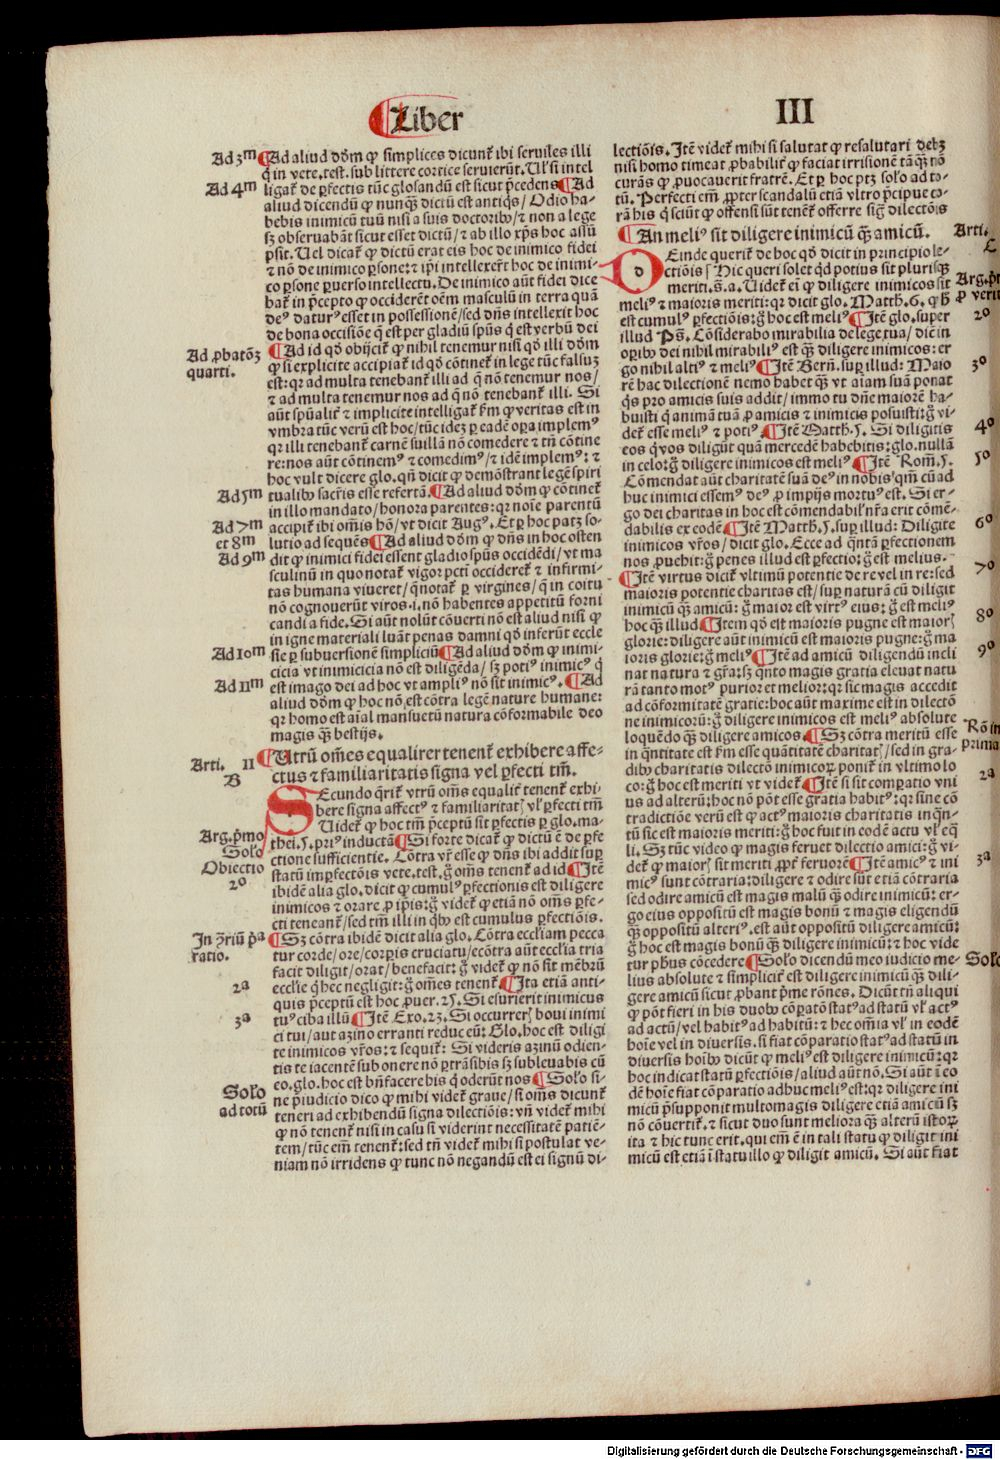 ¶Liber
III
Ad 3m ¶Ad aliud dōm ꝙ simplices dicunt̄ ibi seruiles illi
q̇ in vete.test.sub littere cortice seruierūt. Ul̓ si intel
Ad 4m ligat̄ de ꝑfectis tūc glosandū est sicut p̄cedens ¶Ad
aliud dicendū ꝙ nunqȝ dictū est antiqs/ Odio ha-
bebis inimicū tuū nisi a suis doctoribꝰ/ ⁊ non a lege
sȝ obseruabāt sicut esset dictū/ ⁊ ab illo xp̄s hoc assū
psit. Uel dicat̄ ꝙ dictū erat eis hoc de inimico fidei
⁊ nō de inimico ꝑsone: ⁊ ip̄i intellexer̄t hoc de inimi-
co ꝑsone ꝑuerso intellectu. De inimico aūt fidei dice
bat̄ in p̄cepto ꝙ occiderēt oēm masculū in terra quā
deꝰ daturꝰ esset in possessionē/ sed dn̄s intellexit hoc
de bona occisiōe q̄ est per gladiū sp̄us q̄ est verbū dei
Ad ꝓbatōȝ quarti. ¶Ad id qō obijcit̄ ꝙ nihil tenemur nisi qō illi dōm
ꝙ si explicite accipiat̄ id qō cōtinet̄ in lege tūc falsuȝ
est: qr ad multa tenebant̄ illi ad q̄ nō tenemur nos/
⁊ ad multa tenemur nos ad q̄ nō tenebant̄ illi. Si
aūt spūalit̄ ⁊ implicite intelligat̄ ẜm ꝙ veritas est in
vmbra tūc verū est hoc/ tūc ideȝ ꝑ eadē oꝑa implemꝰ
qr illi tenebant̄ carnē suillā nō comedere ⁊ tn̄ cōtine
re: nos aūt cōtinemꝰ ⁊ comedimꝰ/ ⁊ idē implemꝰ: ⁊
hoc vult dicere glo. qn̄ dicit ꝙ demōstrant legē spiri
Ad 5m tualibꝰ sacris esse refertā. ¶Ad aliud dōm ꝙ cōtinet̄
in illo mandato/ honora parentes: qr noīe parentū
Ad 7m accipit̄ ibi om̄is hō/ vt dicit Augꝰ. Et ꝑ hoc patȝ so-
et 8m lutio ad sequēs ¶Ad aliud dōm ꝙ dn̄s in hoc osten
Ad 9m dit ꝙ inimici fidei essent gladio sp̄us occidēdi/ vt ma
sculinū in quo notat̄ vigor pcti occideret̄ ⁊ infirmi-
tas humana viueret/ q̄ notat̄ ꝑ virgines/ q̄ in coitu
nō cognouerūt viros.i.nō habentes appetitū forni
candi a fide. Si aūt nolūt cōuerti nō est aliud nisi ꝙ
in igne materiali luāt penas damni qō inferūt eccle
Ad 10m sie ꝑ subuersionē simpliciū ¶Ad aliud dōm ꝙ inimi-
cicia vt inimicicia nō est diligēda/ sȝ potiꝰ inimicꝰ q̇
Ad 11m est imago dei ad hoc vt ampliꝰ nō sit inimicꝰ. ¶Ad
aliud dōm ꝙ hoc nō est cōtra legē nature humane:
qr homo est aīal mansuetū natura cōformabile deo
magis qȝ bestijs.
Arti. II B ¶Utrū om̄es equaliter tenent̄ exhibere affe-
ctus ⁊ familiaritatis signa vel ꝑfecti tm̄.
SEcundo qrit̄ vtrū om̄s equalit̄ tenent̄ exhi-
bere signa affectꝰ ⁊ familiaritat̄/ vl̓ ꝑfecti tm̄
Arg.p̄mo Uidet̄ ꝙ hoc tm̄ p̄ceptū sit ꝑfectis ꝑ glo.ma-
Solo thei.5.priꝰ inductā ¶Si forte dicat̄ ꝙ dictū ē de ꝑfe
Obiectio ctione sufficientie. Cōtra vr̄ esse ꝙ dn̄s ibi addit suꝑ
2o statū imꝑfectōis vete.test. ḡ om̄s tenent̄ ad id ¶Itē
ibidē alia glo. dicit ꝙ cumulꝰ ꝑfectionis est diligere
inimicos ⁊ orare ꝓ ip̄is: ḡ videt̄ ꝙ etiā nō om̄s ꝑfe-
cti teneant̄/ sed tm̄ illi in qbꝰ est cumulus ꝑfectiōis.
In ꝯ̄riū p̄a ratio. ¶Sȝ cōtra ibidē dicit alia glo. Cōtra eccl̓iam pecca
tur corde/ ore/ corꝑis cruciatu/ ecōtra aūt eccl̓ia tria
facit diligit/ orat/ benefacit: ḡ videt̄ ꝙ nō sit mēbrū
2a eccl̓ie q̇ hec negligit: ḡ om̄es tenent̄ ¶Ita etiā anti-
quis p̄ceptū est hoc ꝓuer.25. Si esurierit inimicus
3a tuꝰ ciba illū ¶Itē Exo.23. Si occurrer̄/ boui inimi
ci tui/ aut azino erranti reduc eū: Glo. hoc est diligi
te inimicos vr̄os: ⁊ sequit̄: Si videris azinū odien-
tis te iacentē sub onere nō ꝑtrāsibis sȝ subleuabis cū
eo.glo.hoc est bn̄facere his q̇ oderūt nos ¶Solo si-
Solo ad totū ne p̄iudicio dico ꝙ mihi videt̄ graue/ si om̄s dicunt̄
teneri ad exhibendū signa dilectiōis: vn̄ videt̄ mihi
ꝙ nō tenent̄ nisi in casu si viderint necessitatē patiē-
tem/ tūc em̄ tenent̄: sed tn̄ videt̄ mihi si postulat ve-
niam nō irridens ꝙ tunc nō negandū est ei signū di-
lectiōis. Itē videt̄ mihi si salutat ꝙ resalutari debȝ
nisi homo timeat ꝓbabilit̄ ꝙ faciat irrisionē tāqȝ nō
curās ꝙ ꝓuocauerit fratrē. Et ꝑ hoc ptȝ solo ad to-
tū. Perfecti em̄ ꝓpter scandalū etiā vltro p̄cipue co-
rā his q̇ sciūt ꝙ offensi sūt tenent̄ offerre sigꝫ dilectōis
Arti. C ¶An meliꝰ sit diligere inimicū qȝ amicū.
DEinde querit̄ de hoc qō dicit in principio le-
ctiōis/ Hic queri solet qd potius sit plurisqȝ
Arg.p̄t ꝙ verit meriti.s.a. Uidet̄ ei ꝙ diligere inimicos sit
meliꝰ ⁊ maioris meriti: qr dicit glo. Matth.6. ꝙ h̄
2o est cumulꝰ ꝑfectiōis: ḡ hoc est meliꝰ ¶Itē glo.super
illud Ps̄. Cōsiderabo mirabilia de lege tua/ diē in
oꝑibꝰ dei nihil mirabiliꝰ est qȝ diligere inimicos: er
3o go nihil altiꝰ ⁊ meliꝰ ¶Itē Bern. suꝑ illud: Maio
rē hac dilectionē nemo habet qȝ vt aīam suā ponat
qs pro amicis suis addit/ immo tu dn̄e maiorē ha-
buisti q̇ animā tuā ꝓ amicis ⁊ inimicis posuisti: ḡ vi-
4o det̄ esse meliꝰ ⁊ potiꝰ. ¶Itē Matth.5. Si diligitis
eos q̇ vos diligūt quā mercedē habebitis: glo. nullā
5o in celo: ḡ diligere inimicos est meliꝰ ¶Itē Rom̄.5.
Cōmendat aūt charitatē suā deꝰ in nobis/ qm̄ cū ad
huc inimici essemꝰ deꝰ ꝓ impijs mortuꝰ est. Si er-
go dei charitas in hoc est cōmendabil̓ nr̄a erit cōmē-
6o dabilis ex eodē ¶Itē Matth.5.suꝑ illud: Diligite
inimicos vr̄os/ dicit glo. Ecce ad qntā ꝑfectionem
nos ꝓuehit: ḡ penes illud est ꝑfectio: ḡ est melius.
7o ¶Itē virtus dicit̄ vltimū potentie de re vel in re: sed
maioris potentie charitas est/ suꝑ naturā cū diligit
inimicū qȝ amicū: ḡ maior est virtꝰ eius: ḡ est meliꝰ
8o hoc qȝ illud ¶Item qō est maioris pugne est maior̄/
glorie: diligere aūt inimicū est maioris pugne: ḡ ma
9o ioris glorie: ḡ meliꝰ ¶Itē ad amicū diligendū incli
nat natura ⁊ gr̄a: sȝ qnto magis gratia eleuat natu
rā tanto motꝰ purior et melior: qr sic magis accedit
ad cōformitatē gratie: hoc aūt maxime est in dilectō
ne inimicorū: ḡ diligere inimicos est meliꝰ absolute
Rō in loquēdo qȝ diligere amicos. ¶Sȝ cōtra meritū esse
prima in qntitate est ẜm esse quātitatē charitat̄/ sed in gra-
dibꝰ charitatis dilectō inimicoꝝ ponit̄ in vltimo lo
2a co: ḡ hoc est meriti vt videt̄ ¶Itē si sit comꝑatio vni
us ad alterū: hoc nō pōt esse gratia habitꝰ: qr sine cō
tradictiōe verū est ꝙ actꝰ maioris charitatis in qn-
tū sic est maioris meriti: ḡ hoc fuit in eodē actu vl̓ eq̄
li. Sȝ tūc video ꝙ magis feruet dilectio amici: ḡ vi-
3a det̄ ꝙ maior̄/ sit meriti ꝓpt̄ feruorē ¶Itē amicꝰ ⁊ ini
micꝰ sunt cōtraria: diligere ⁊ odire sūt etiā cōtraria
sed odire amicū est magis malū qȝ odire inimicū: er-
go eius oppositū est magis bonū ⁊ magis eligendū
qȝ oppositū alteriꝰ. est aūt oppositū diligere amicū:
ḡ hoc est magis bonū qȝ diligere inimicū: ⁊ hoc vide
Solo tur pb̄us cōcedere ¶Solo dicendū meo iudicio me-
lius absolute ⁊ simplicit̄ est diligere inimicū qȝ dili-
gere amicū sicut ꝓbant p̄me rōnes. Dicūt tn̄ aliqui
ꝙ pōt fieri in his duobꝰ cōꝑatō statꝰ ad statū vl̓ actꝰ
ad actū/ vel habitꝰ ad habitū: ⁊ hec om̄ia vl̓ in eodē
hoīe vel in diuersis. si fiat cōꝑatio statꝰ ad statū in
diuersis hoībꝰ dicūt ꝙ meliꝰ est diligere inimicū: qr
hoc indicat statū ꝑfectiōis/ aliud aūt nō. Si aūt ī eo
dē hoīe fiat cōꝑatio adhuc meliꝰ est: qr diligere ini
micū p̄supponit multomagis diligere etiā amicū sȝ
nō cōuertit̄. ⁊ sicut duo sunt meliora qȝ alterū istoꝝ
ita ⁊ hic tunc erit. qui em̄ ē in tali statu ꝙ diligit ini
micū est etiā ī statu illo ꝙ diligit amicū. Si aūt fiat
Digitalisierung gefördert durch die Deutsche Forschungsgemeinschaft - DFG